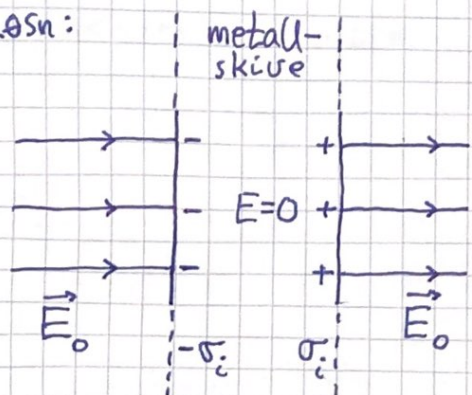 øsn:
metall-
skive
- +
- E=0 +
- +
E⃗₀ E⃗₀
-σᵢ σᵢ